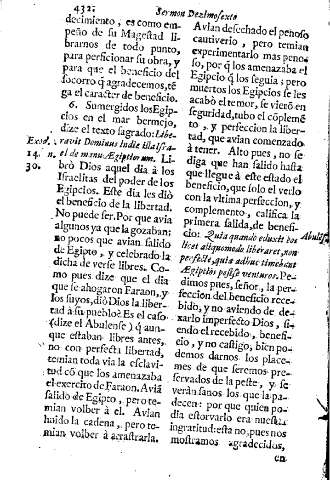 432.
Sermon Dezimosexto
decimiento, es como em-
peño de su Magestad li-
brarnos de todo punto,
para perficionar su obra, y
para que el beneficio del
socorro q̃ agradecemos, tẽ-
ga el caracter de beneficio.
6. Sumergidos los Egip-
cios en el mar bermejo,
dize el texto sagrado: Libe-
Exod. 14. n. 30.
ravit Dominus in die illa Isra-
el de manu Ægiptiorum. Li-
brò Dios aquel dia à los
Israelitas del poder de los
Egipcios. Este dia les diò
el beneficio de la libertad.
No puede ser. Por que avia
algunos ya que la gozaban;
no pocos que avian salido
de Egipto, y celebrado la
dicha de verse libres. Co-
mo pues dize que el dia
que se ahogaron Faraon, y
los suyos, diò Dios la liber-
tad à su pueblo? Es el caso
(dize el Abulense) q̃ aun-
que estaban libres antes,
no con perfecta libertad,
temian toda via la esclavi-
tud cõ que los amenazaba
el exercito de Faraon. Aviã
salido de Egipto, pero te-
mian volver à èl. Avian
huido la cadena, pero te-
mian volver à arrastrarla.
Avian desechado el penoso
cautiverio, pero temian
experimentarlo mas peno-
so, por q̃ los amenazaba el
Egipcio q̃ los seguia; pero
muertos los Egipcios se les
acabò el temor, se vierõ en
seguridad, tubo el cõplemẽ-
to, y perfeccion la liber-
tad, que avian comenzado
à tener. Alto pues, no se
diga que han salido hasta
que llegue à este estado el
beneficio, que solo el verse
con la vltima perfeccion, y
complemento, califica la
primera salida, de benefi-
cio: Quia quando eduxit eos
Abulẽs.
licet aliquo modo liberaret, non
perfectè, quia adhuc timebant
Ægiptios posse venturos. Pe-
dimos pues, señor, la per-
feccion del beneficio rece-
bido, y no aviendo de de-
xarlo imperfecto Dios, si-
endo el recebido, benefi-
cio, y no castigo, bien po-
demos darnos los place-
mes de que seremos pre-
servados de la peste, y se
veràn sanos los que la pa-
decen: por que quien po-
dia estorvarlo era nuestra
ingratitud: esta no, pues nos
mostramos agradecidos,
en